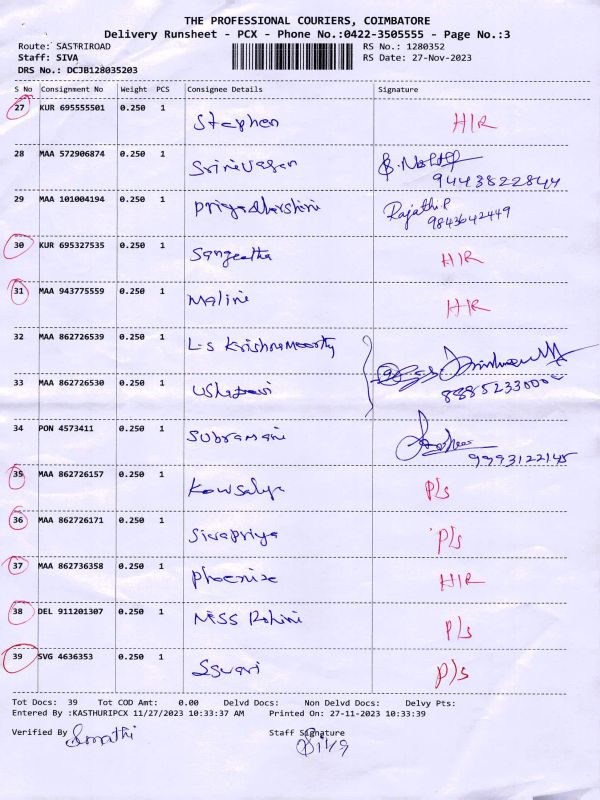 THE PROFESSIONAL COURIERS, COIMBATORE
Delivery Runsheet - PCX - Phone No.:0422-3505555 - Page No.:3
Route: SASTRIROAD RS No.: 1280352
Staff: SIVA RS Date: 27-Nov-2023
DRS No.: DCJB128035203
S No Consignment No Weight PCS Consignee Details Signature
27 KUR 695555501 0.250 1 Stephen H/R
28 MAA 572906874 0.250 1 Srinevasan 9443822844
29 MAA 101004194 0.250 1 Priyadharshini Rajathi.P
9843642449
30 KUR 695327535 0.250 1 Sangeetha H/R
31 MAA 943775559 0.250 1 Malini H/R
32 MAA 862726539 0.250 1 L-S Krishnamoorthy
33 MAA 862726530 0.250 1
34 PON 4573411 0.250 1 Subramani 9993122145
35 MAA 862726157 0.250 1 Kowsalya P/s
36 MAA 862726171 0.250 1 Sivapriya P/s
37 MAA 862736358 0.250 1 Phoenixe H/R
38 DEL 911201307 0.250 1 Miss Rohini P/s
39 SVG 4636353 0.250 1 P/s
Tot Docs: 39 Tot COD Amt: 0.00 Delvd Docs: Non Delvd Docs: Delvy Pts:
Entered By :KASTHURIPCX 11/27/2023 10:33:37 AM Printed On: 27-11-2023 10:33:39
Verified By Staff Signature